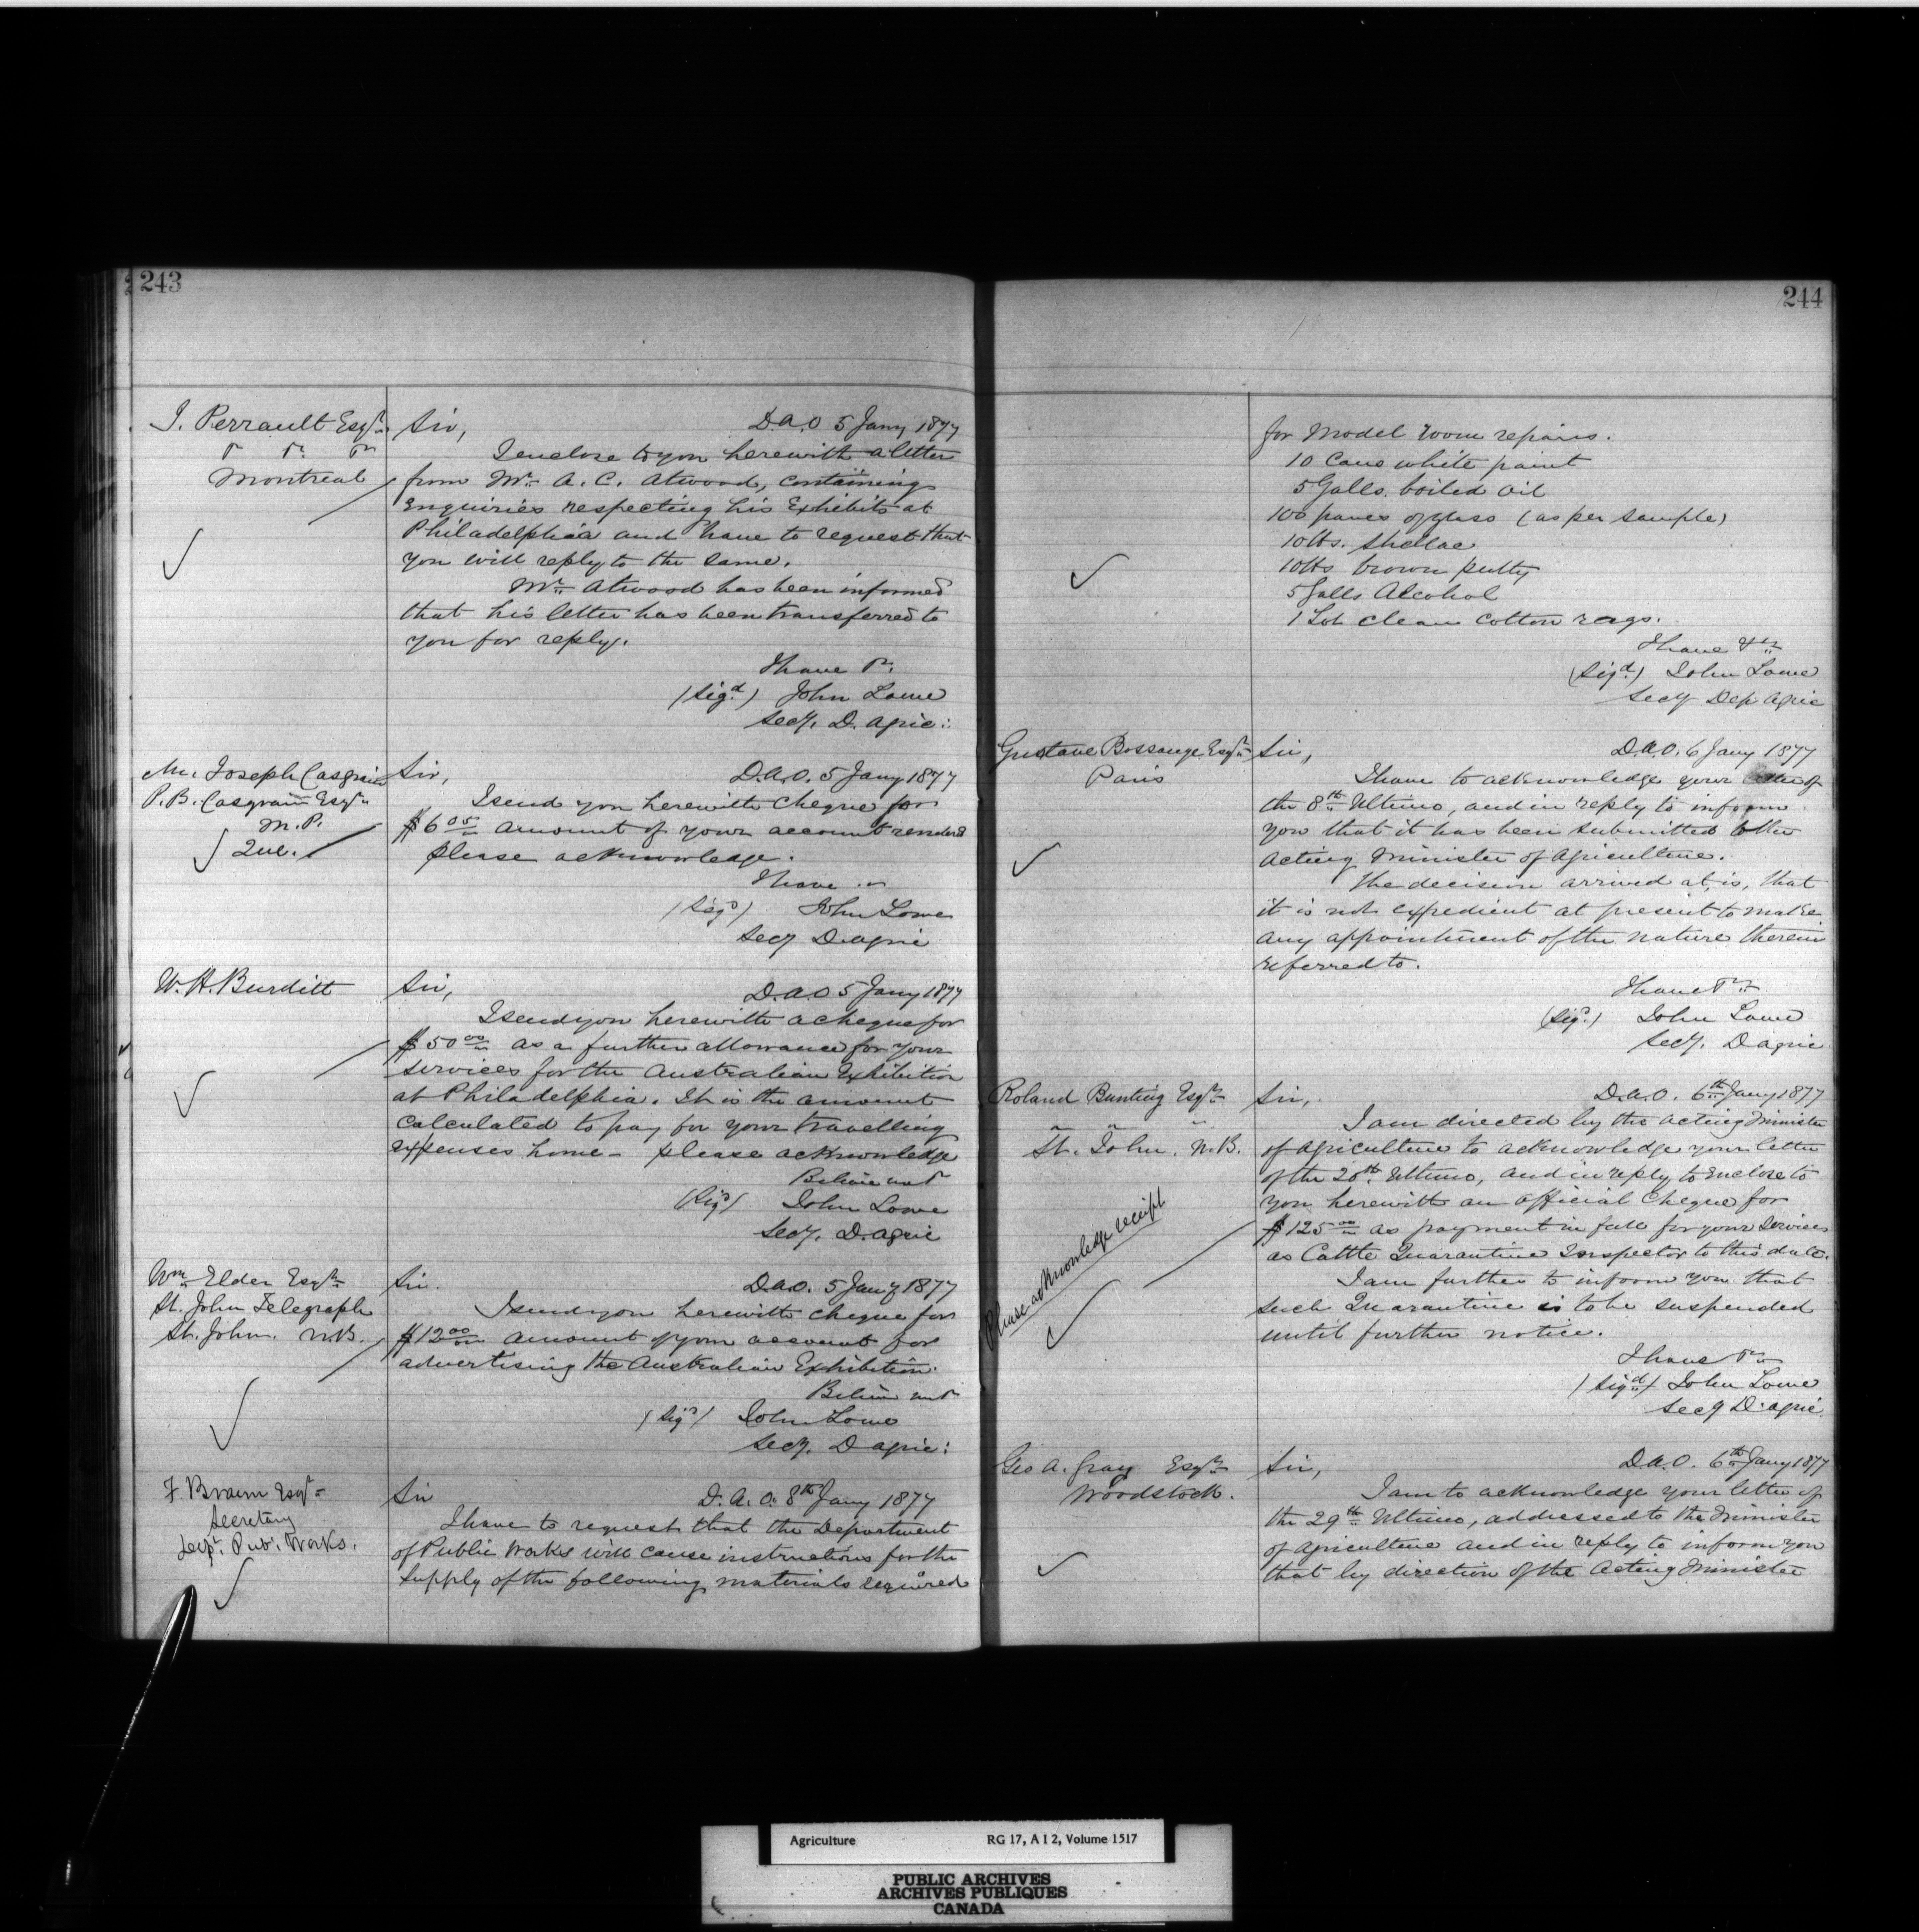 243
J. Perrault Esqr.
Montreal
Sir, D.A.O 5 Jany 1877
I enclose to you herewith a letter
from Mr. A. C. Atwood, containing
Enquiries respecting his Exhibits at
Philadelphia and have to request that
you will reply to the same.
Mr. Atwood has been informed
that his letter has been transferred to
you for reply.
I have
(Sigd.) John Lowe
Secy. D. Agric:
Mr. Joseph Casgrain
P.B. Casgrain Esqr.
M.P.
Que.
Sir, D.A.O. 5 Jany 1877
I send you herewith cheque for
$6 05 amount of your account rendered
please acknowledge.
I have
(Sigd) John Lowe
Secy D. Agric
W.H. Burditt
Sir, D.A.O 5 Jany 1877
I send you herewith a cheque for
$50 00 as a further allowance for your
services for the Australian Exhibition
at Philadelphia. It is the amount
calculated to pay for your travelling
expenses home - please acknowledge
Believe me
(Sigd) John Lowe
Secy. D. Agric
Wm. Elder Esqr.
St. John Telegraph
St. John. N.B.
Sir. D.A.O. 5 Jany 1877
I send you herewith cheque for
$12 00 amount of your account for
advertising the Australian Exhibition.
Believe me
(Sigd) John Lowe
Secy. D Agric:
F. Braun Esqr
Secretary
Dept. Pub. Works.
Sir D.A.O. 8th Jany 1877
I have to request that the Department
of Public Works will cause instructions for the
supply of the following materials required
244
for Model room repairs.
10 Cans white paint
5 Galls. boiled oil
100 panes of glass (as per sample)
10 lbs. Shellac
10 lbs brown putty
5 Galls Alcohol
1 Lot clean cotton rags.
I have &c
(Sigd.) John Lowe
Secy Dep Agric
Gustave Bossange Esqr.
Paris
Sir, D.A.O. 6 Jany 1877
I have to acknowledge your letter of
the 8th Ultimo, and in reply to inform
you that it has been submitted to the
Acting Minister of Agriculture.
The decision arrived at, is, that
it is not expedient at present to make
any appointment of the nature therein
referred to.
I have
(Sigd.) John Lowe
Secy. D Agric
Roland Bunting Esqr.
St. John. N.B.
Please acknowledge receipt
Sir, D.A.O. 6th Jany 1877
I am directed by the Acting Minister
of Agriculture to acknowledge your letter
of the 20th Ultimo, and in reply to enclose to
you herewith an official Cheque for
$125 00 as payment in full for your services
as Cattle Quarantine Inspector to this date.
I am further to inform you that
such Quarantine is to be suspended
until further notice.
I have
(Sigd) John Lowe
Secy D. Agric
Geo A. Gray Esqr.
Woodstock.
Sir, D.A.O. 6th Jany 1877
I am to acknowledge your letter of
the 29th Ultimo, addressed to the Minister
of Agriculture and in reply to inform you
that by direction of the Acting Minister
Agriculture RG 17, A I 2, Volume 1517
PUBLIC ARCHIVES
ARCHIVES PUBLIQUES
CANADA